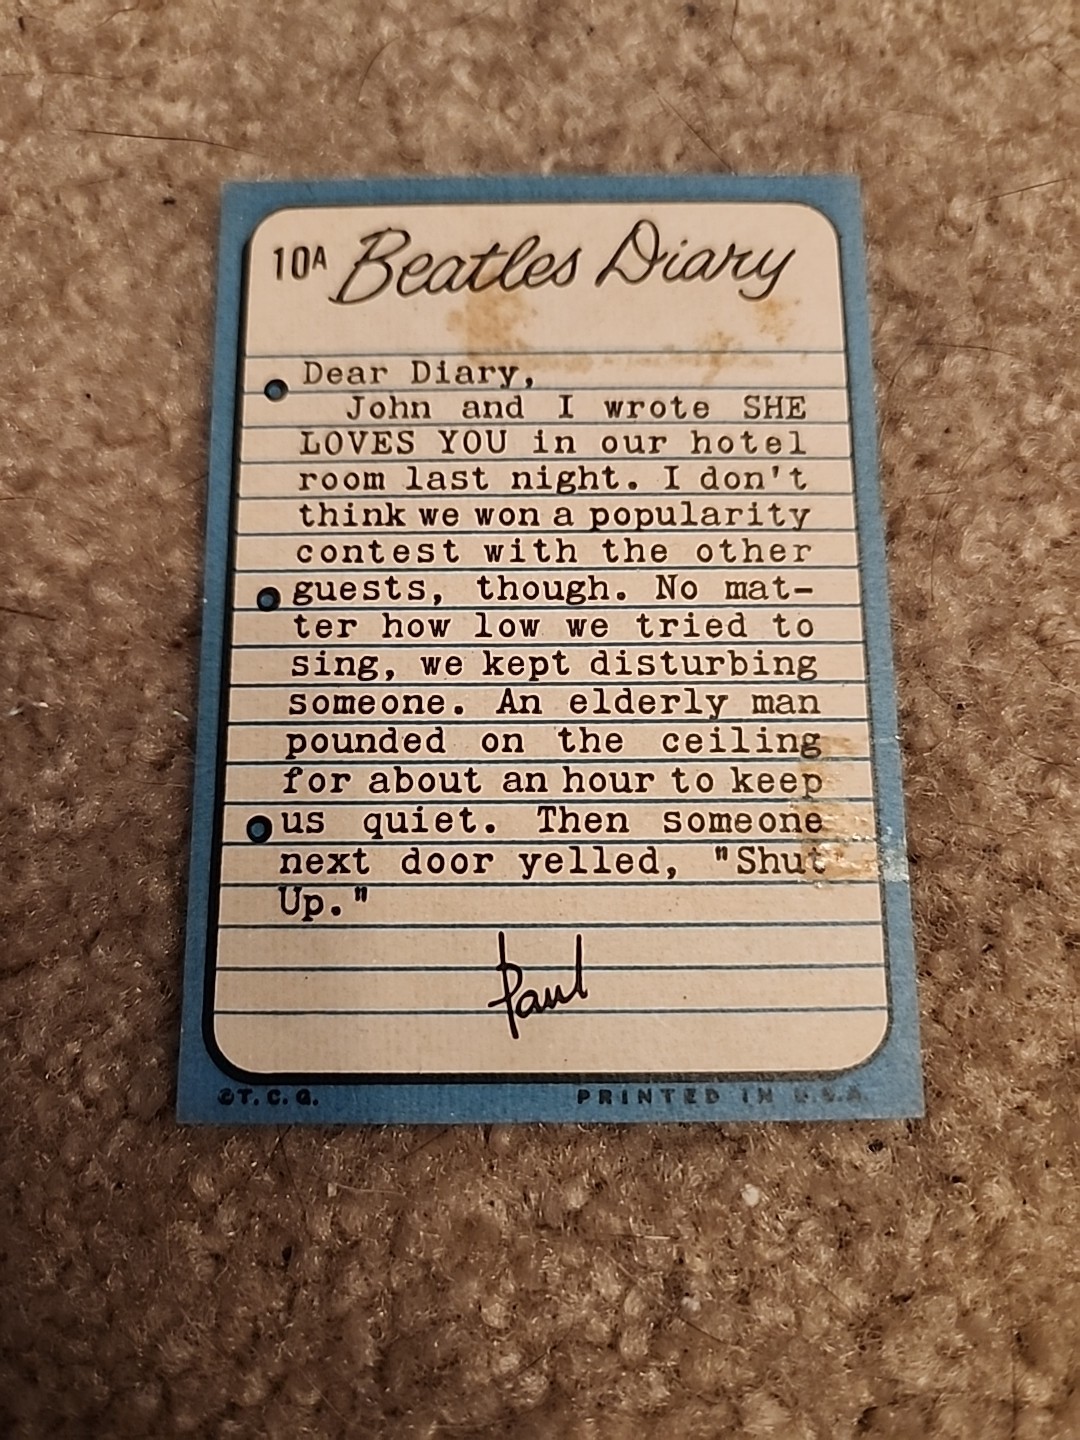 10A Beatles Diary
Dear Diary,
John and I wrote SHE
LOVES YOU in our hotel
room last night. I don't
think we won a popularity
contest with the other
guests, though. No mat-
ter how low we tried to
sing, we kept disturbing
someone. An elderly man
pounded on the ceiling
for about an hour to keep
us quiet. Then someone
next door yelled, "Shut
Up."
Paul
©T.C.G. PRINTED IN U.S.A.